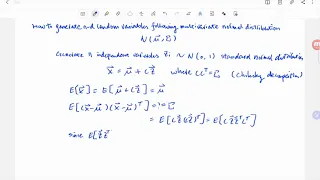 How to generate random variables following multivariate normal distribution
N(μ⃗, Σ)
Generate n independent variables Zi ~ N(0, 1) standard normal distribution
x⃗ = μ⃗ + L z⃗ where LLᵀ = Σ (Cholesky decomposition)
E(x⃗) = E[μ⃗ + L z⃗] = μ⃗
E[(x⃗ - μ⃗)(x⃗ - μ⃗)ᵀ] =
= E[L z⃗ (L z⃗)ᵀ] = E[L z⃗ z⃗ᵀ Lᵀ]
since E[z⃗ z⃗